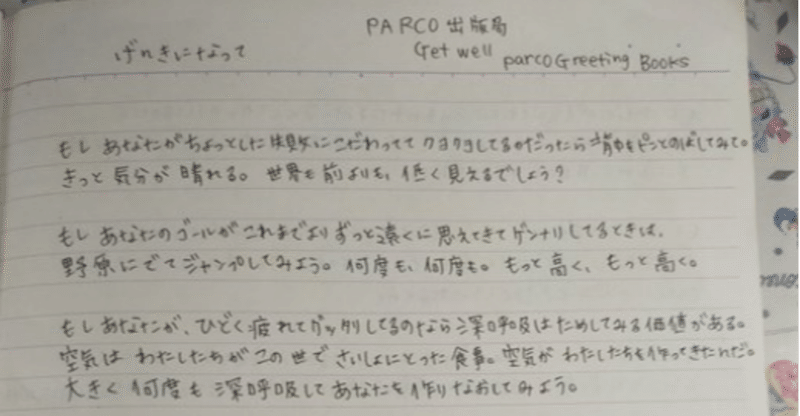 PARCO出版局
げんきになって Get well parco Greeting Books
もしあなたがちょっとした失敗にこだわっててクヨクヨしてるのだったら背中をピンとのばしてみて。
きっと気分が晴れる。世界も前よりも、低く見えるでしょう?
もしあなたのゴールがこれまでよりずっと遠くに思えてきてゲンナリしてるときは、
野原にでてジャンプしてみよう。何度も、何度も。もっと高く、もっと高く。
もしあなたが、ひどく疲れてガックリしてるのなら深呼吸はためしてみる価値がある。
空気はわたしたちがこの世でさいしょにとった食事。空気がわたしたちを作ってきたんだ。
大きく何度も深呼吸してあなたを作りなおしてみよう。